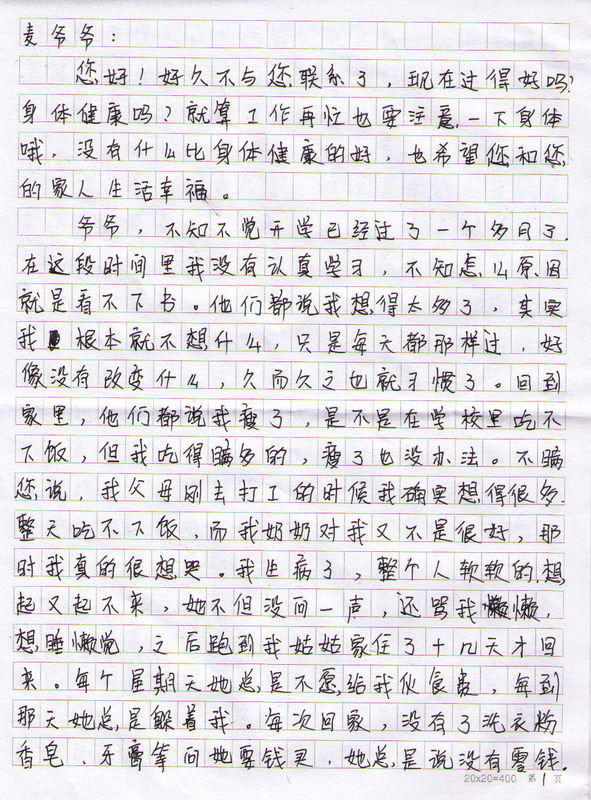 麦爷爷：
您好！好久不与您联系了，现在过得好吗？
身体健康吗？就算工作再忙也要注意一下身体
哦，没有什么比身体健康的好，也希望您和您
的家人生活幸福。
爷爷，不知不觉开学已经过了一个多月了，
在这段时间里我没有认真学习，不知怎么原因
就是看不下书。他们都说我想得太多了，其实
我根本就不想什么，只是每天都那样过，好
像没有改变什么，久而久之也就习惯了。回到
家里，他们都说我瘦了，是不是在学校里吃不
下饭，但我吃得瞒多的，瘦了也没办法。不瞒
您说，我父母刚去打工的时候我确实想得很多，
整天吃不下饭，而我奶奶对我又不是很好，那
时我真的很想哭。我生病了，整个人软软的，想
起又起不来，她不但没问一声，还骂我懒，
想睡懒觉，之后跑到我姑姑家住了十几天才回
来。每个星期天她总是不愿给我伙食费，每到
那天她总是躲着我。每次回家，没有了洗衣粉
香皂、牙膏等问她要钱买，她总是说没有零钱。
20×20=400 第1页